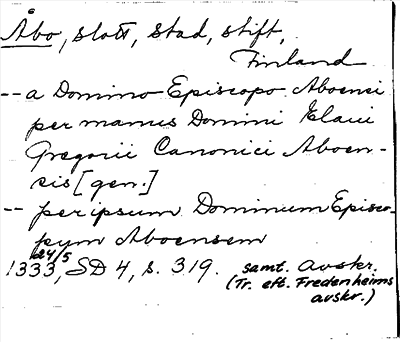 Åbo, slott, stad, stift,
Finland
-- a Domino Episcopo Aboensi
per manus Domini Elavi
Gregorii Canonici Aboen-
sis [gen.]
-- per ipsum Dominum Episco-
pum Aboensem
24/5
1333, SD 4, s. 319. samt. Avskr.
(Tr. eft. Fredenheims
avskr.)